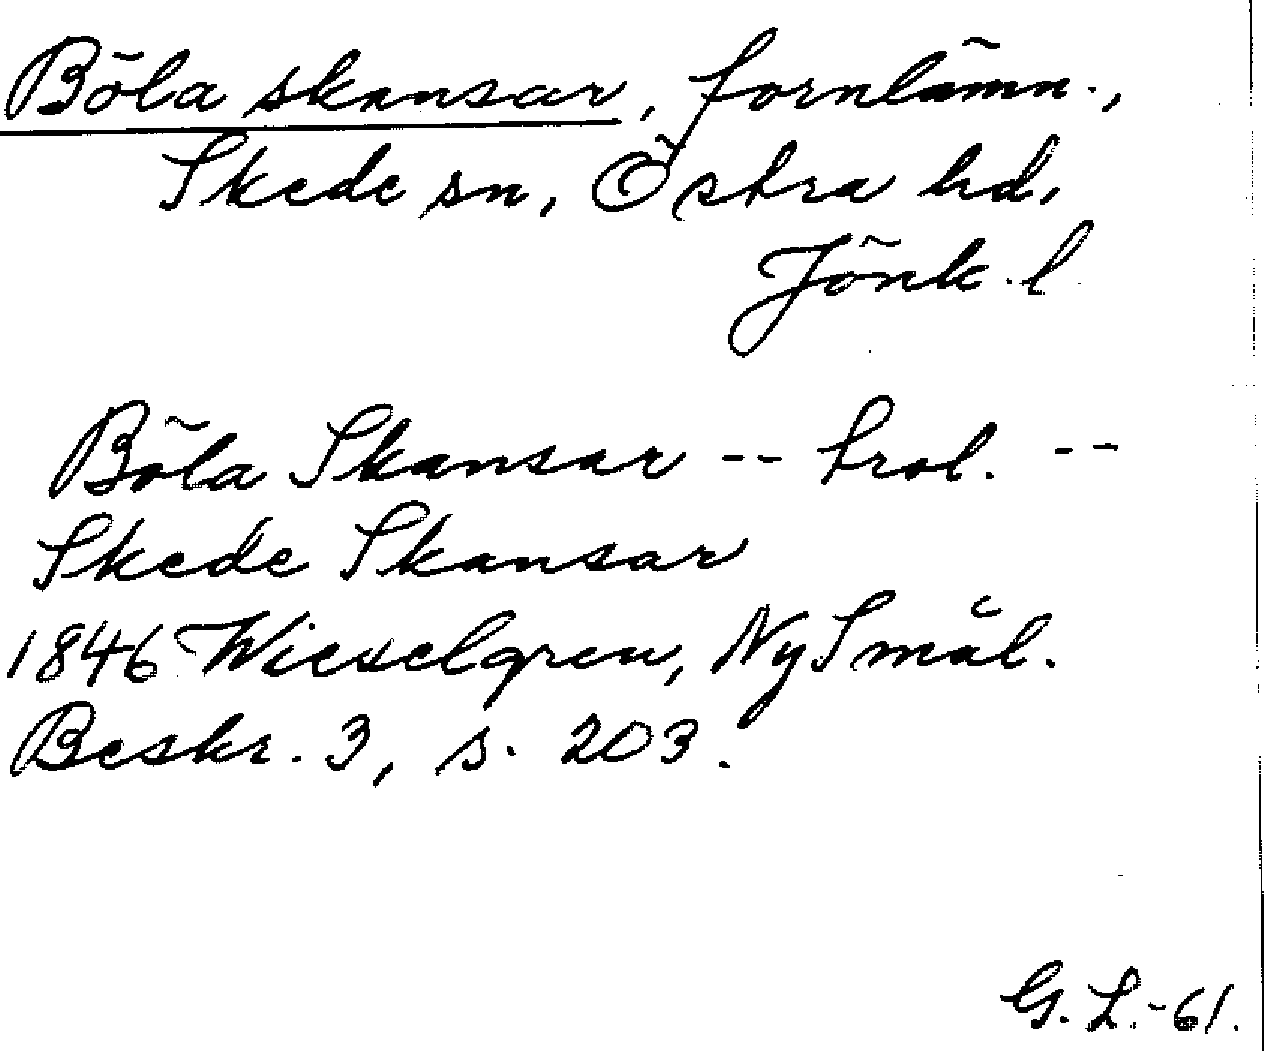 Böla skansar, fornlämn.,
Skede sn, Östra hd,
Jönk. l
Böla Skansar -- trol. --
Skede Skansar
1846 Wieselgren, Ny Smål.
Beskr. 3, s. 203.
G. L. -61.